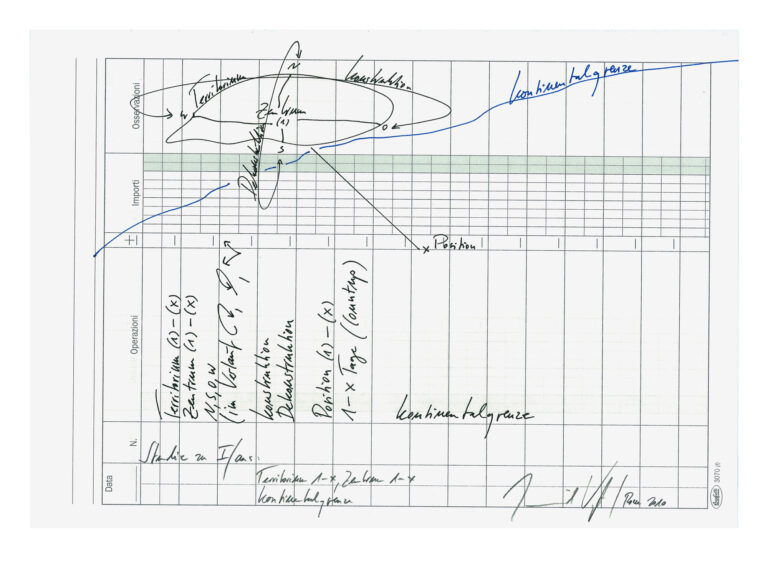 N
Territorium
Konstruktion
Kontinentalgrenze
Osservazioni
W
Zentrum
(1)
O
S
Dekonstruktion
Importi
+
Position
Operazioni
Territorium (1) – (x)
Zentrum (1) – (x)
N, S, O, W
(im Verlauf
Konstruktion
Dekonstruktion
Position (1) – (x)
1–x Tage (Countup)
Kontinentalgrenze
N.
Studie zu I/aus:
Data
Territorium 1–x, Zentrum 1–x
Kontinentalgrenze
3070 (f)